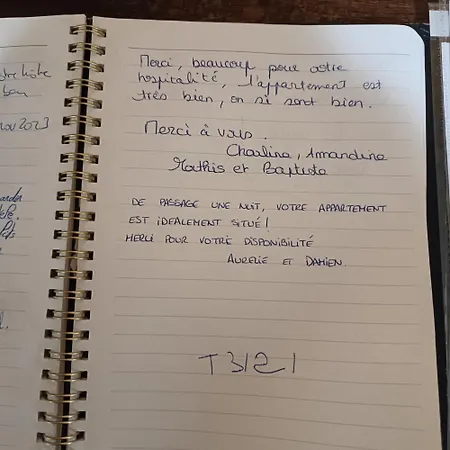 stre liste
bou
nov 2023
Merci, beaucoup pour votre
hospitalité, l'appartement est
très bien, on si sont bien.
Merci à vous.
Charline, Amandine
Mathis et Baptiste
DE PASSAGE UNE NUIT, VOTRE APPARTEMENT
EST IDEALEMENT SITUÉ!
MERCI POUR VOTRE DISPONIBILITÉ
AURELIE ET DAMIEN.
T3121